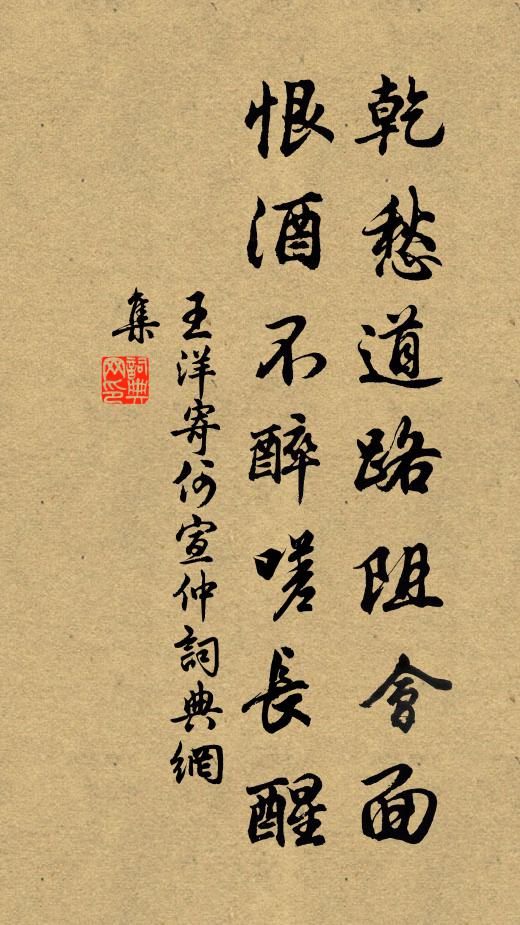 乾愁道路阻會面
恨酒不醉嗟長醒
王洋寄何宣仲詞典網
集
詞典
网印